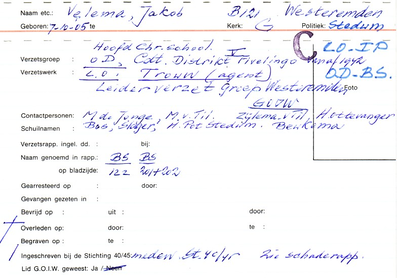 Naam etc.: Velema, Jakob B121 Westeremden
Geboren: 7-10-05 te Kerk: G Politiek: Stedum
Hoofd Chr. school. V C L.O-I.P
Verzetsgroep : O.D., Cdt. Distrikt Fivelingo vanaf 1942 O.D-B.S.
Verzetswerk : L.O. Trouw (agent)
Leider verzet Groep Westeremden, Foto
GOIW
Contactpersonen: M. de Jonge, M. v. Til.
Schuilnamen : Bos, H. Pot Stedum. Beukema
Verzetsrapp. ingel. dd. : bij:
Naam genoemd in rapp.: BS BS
op bladzijde: 122 201+202
Gearresteerd op : door:
Gevangen gezeten in :
Bevrijd op : uit : door:
Overleden op: : door: te :
Begraven op : te :
Ingeschreven bij de Stichting 40/45: medew. St. 40/45 Zie schaderapp.
Lid G.O.I.W. geweest: Ja / Neen